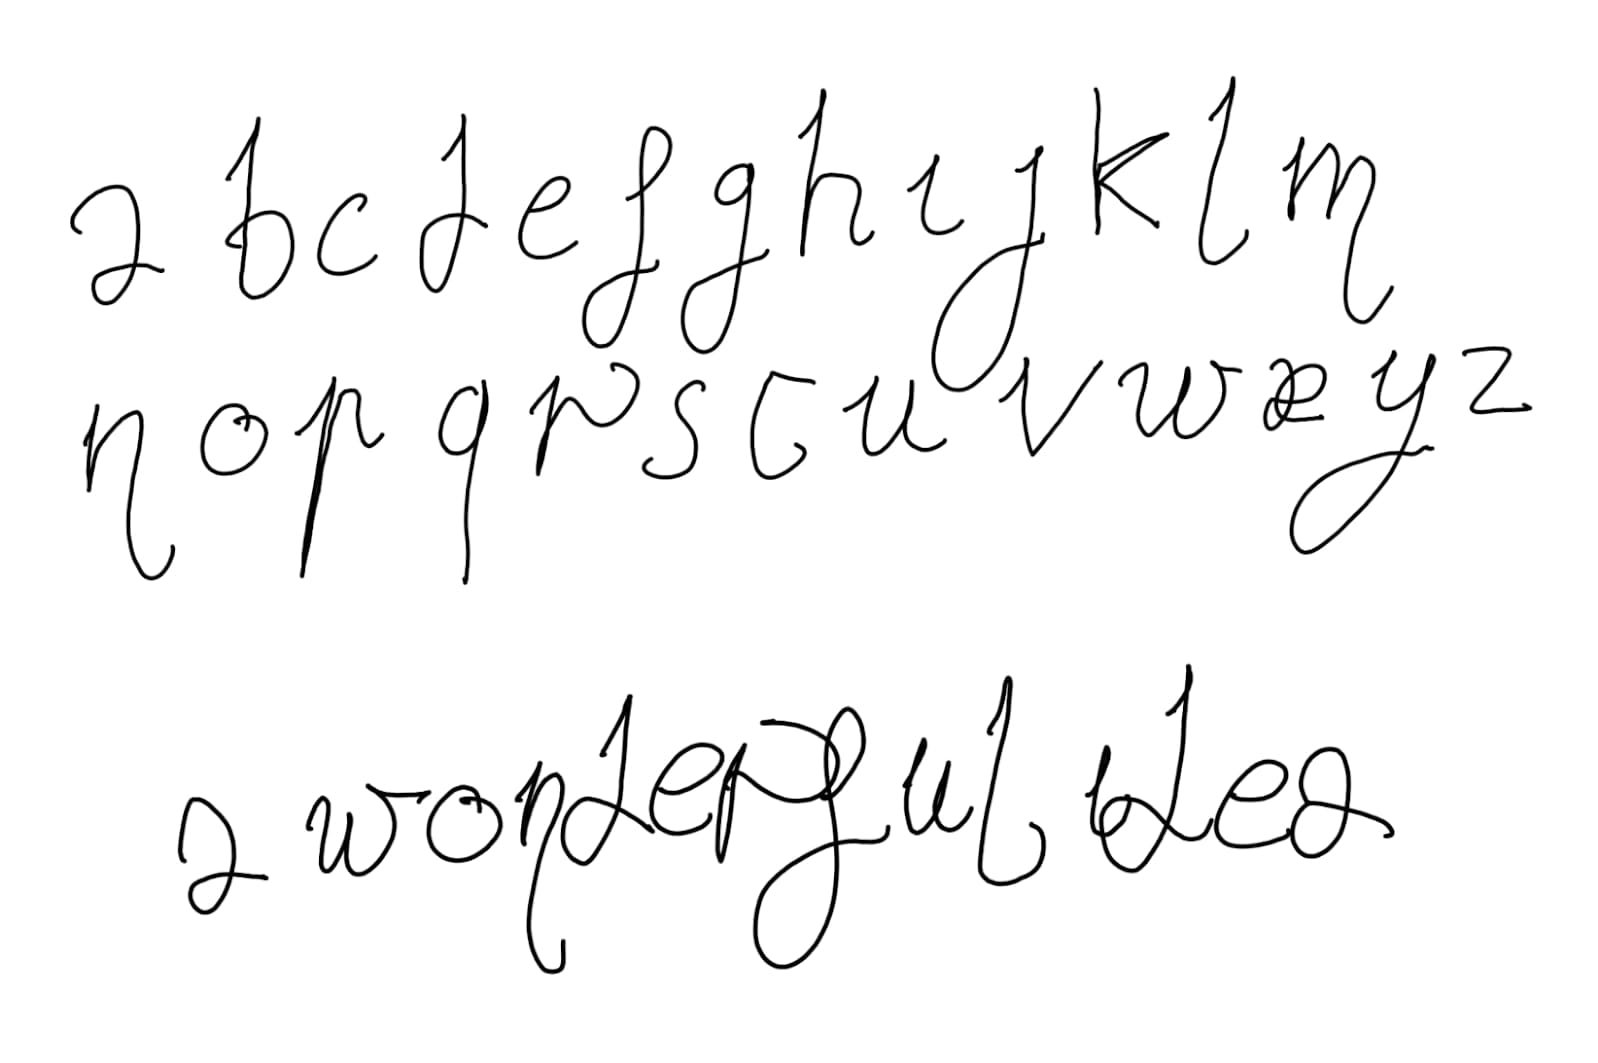 a b c d e f g h i j k l m
n o p q r s t u v w x y z
a wonderful idea